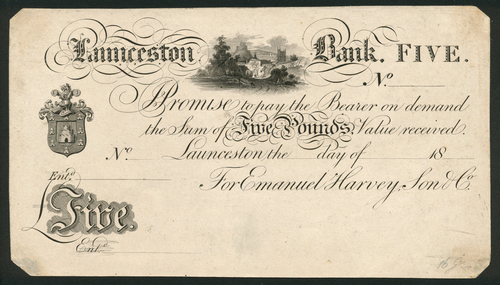 Launceston Bank. FIVE.
No
Promise to pay the Bearer on demand
the Sum of Five Pounds Value received.
No Launceston the day of 18
Entd.
For Emanuel Harvey, Son & Co.
£Five.
Entd.